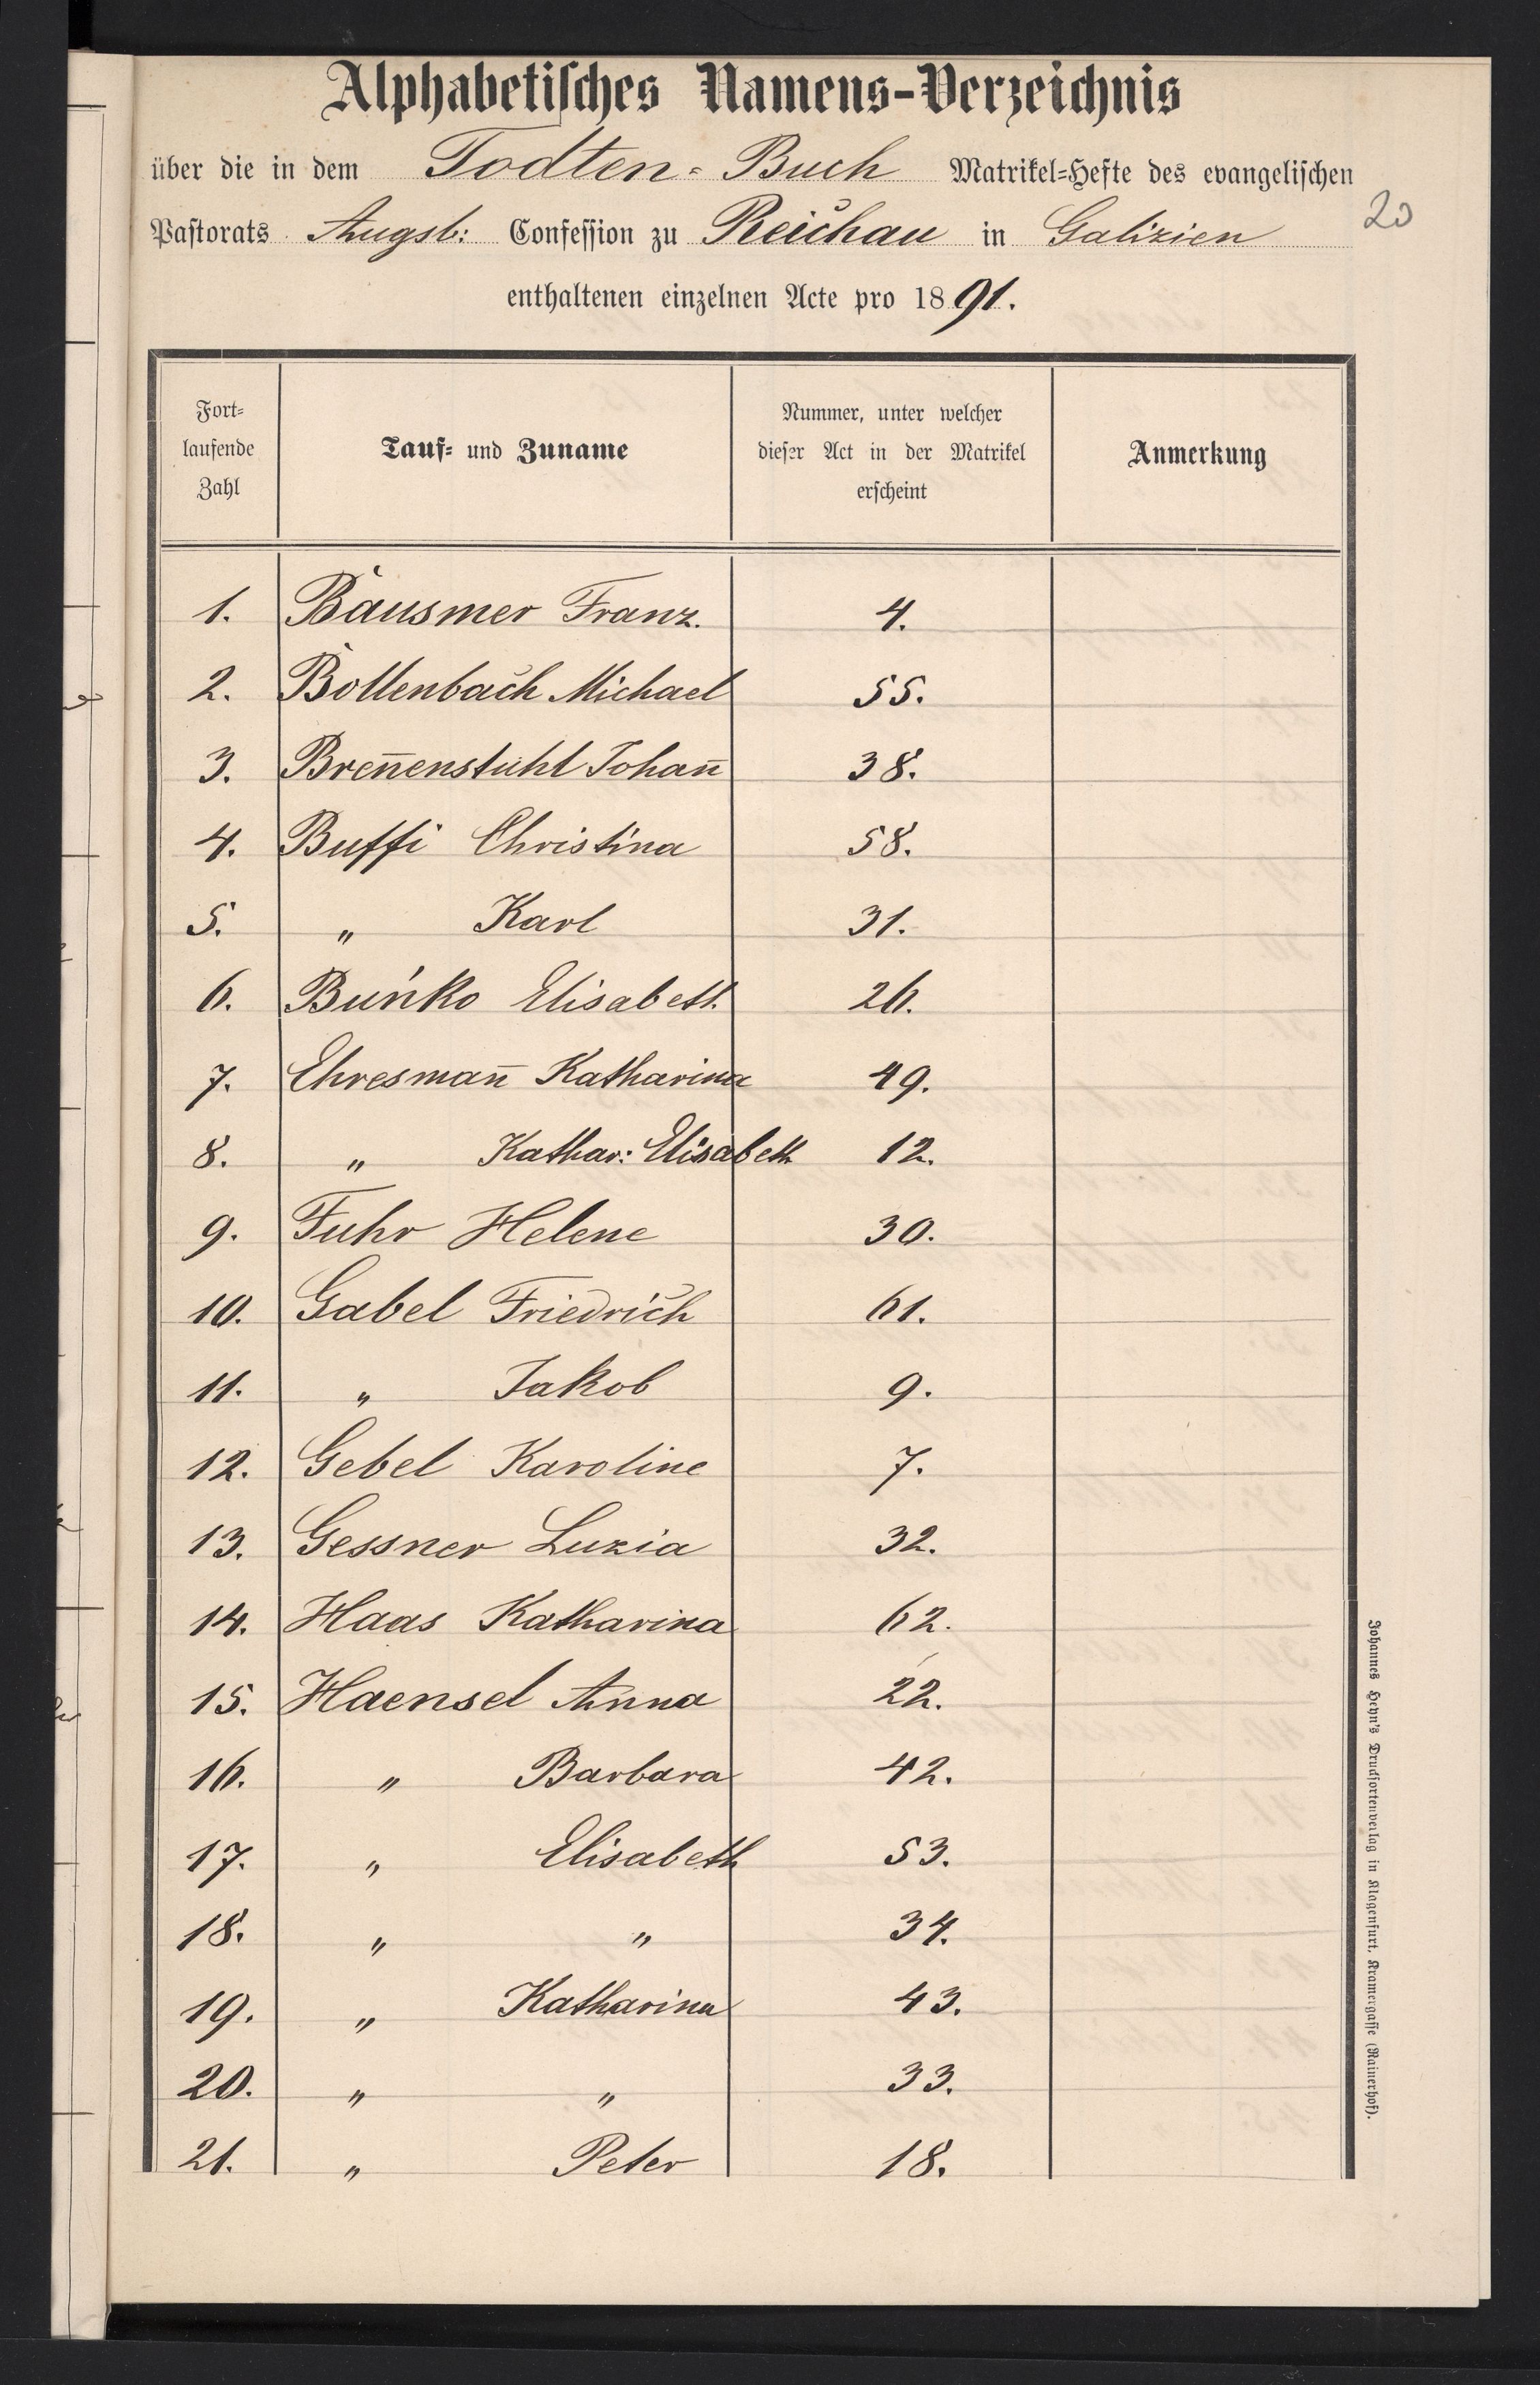 Alphabetisches Namens-Verzeichnis
über die in dem Todten-Buch Matrikel-Hefte des evangelischen
20
Pastorats Augsb: Confession zu Reichau in Galizien
enthaltenen einzelnen Acte pro 1891.
Fort-
laufende
Zahl
Tauf- und Zuname
Nummer, unter welcher
dieser Act in der Matrikel
erscheint
Anmerkung
1. Bausmer Franz. 4.
2. Bollenbach Michael 55.
3. Breñenstuhl Johañ 38.
4. Buffi Christina 58.
5. " Karl 31.
6. Buńko Elisabeth 26.
7. Ehresmañ Katharina 49.
8. " Kathar: Elisabeth 12.
9. Fuhr Helene 30.
10. Gabel Friedrich 61.
11. " Jakob 9.
12. Gebel Karoline 7.
13. Gessner Luzia 32.
14. Haas Katharina 62.
15. Haensel Anna 22.
16. " Barbara 42.
17. " Elisabeth 53.
18. " " 34.
19. " Katharina 43.
20. " " 33.
21. " Peter 18.
Johannes Heyn's Drucksortenverlag in Klagenfurt, Kramergasse (Rainerhof).